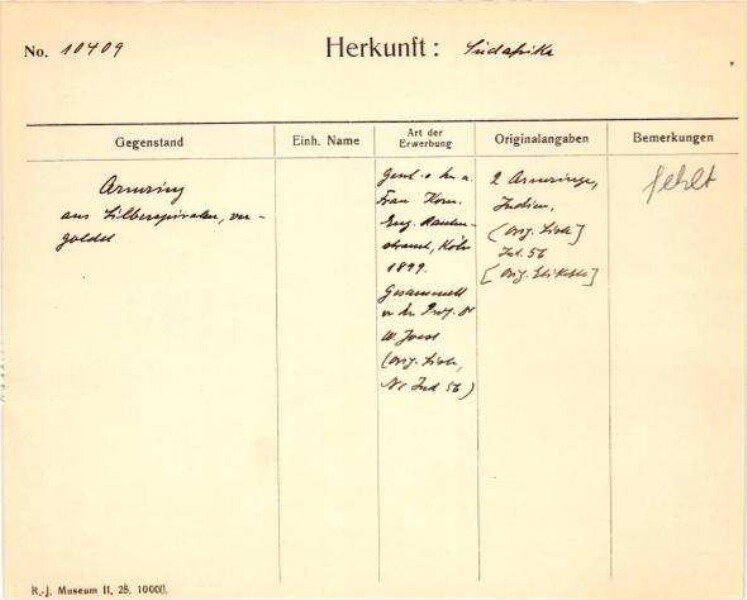 No. 10409
Herkunft: Südafrika
Gegenstand
Einh. Name
Art der
Erwerbung
Originalangaben
Bemerkungen
Armring
aus Silberspiralen, ver-
goldet
Frau Kom.
Eug. Rauten-
strauch, Köln
1899.
Gesammelt
Prof. Dr
W. Joest
(Orig. Liste,
Nr Ind 56)
2 Armringe,
Indien,
(Orig. Liste]
Ind. 56
[Orig. Etikette]
fehlt
R.-J. Museum II, 28. 10000.